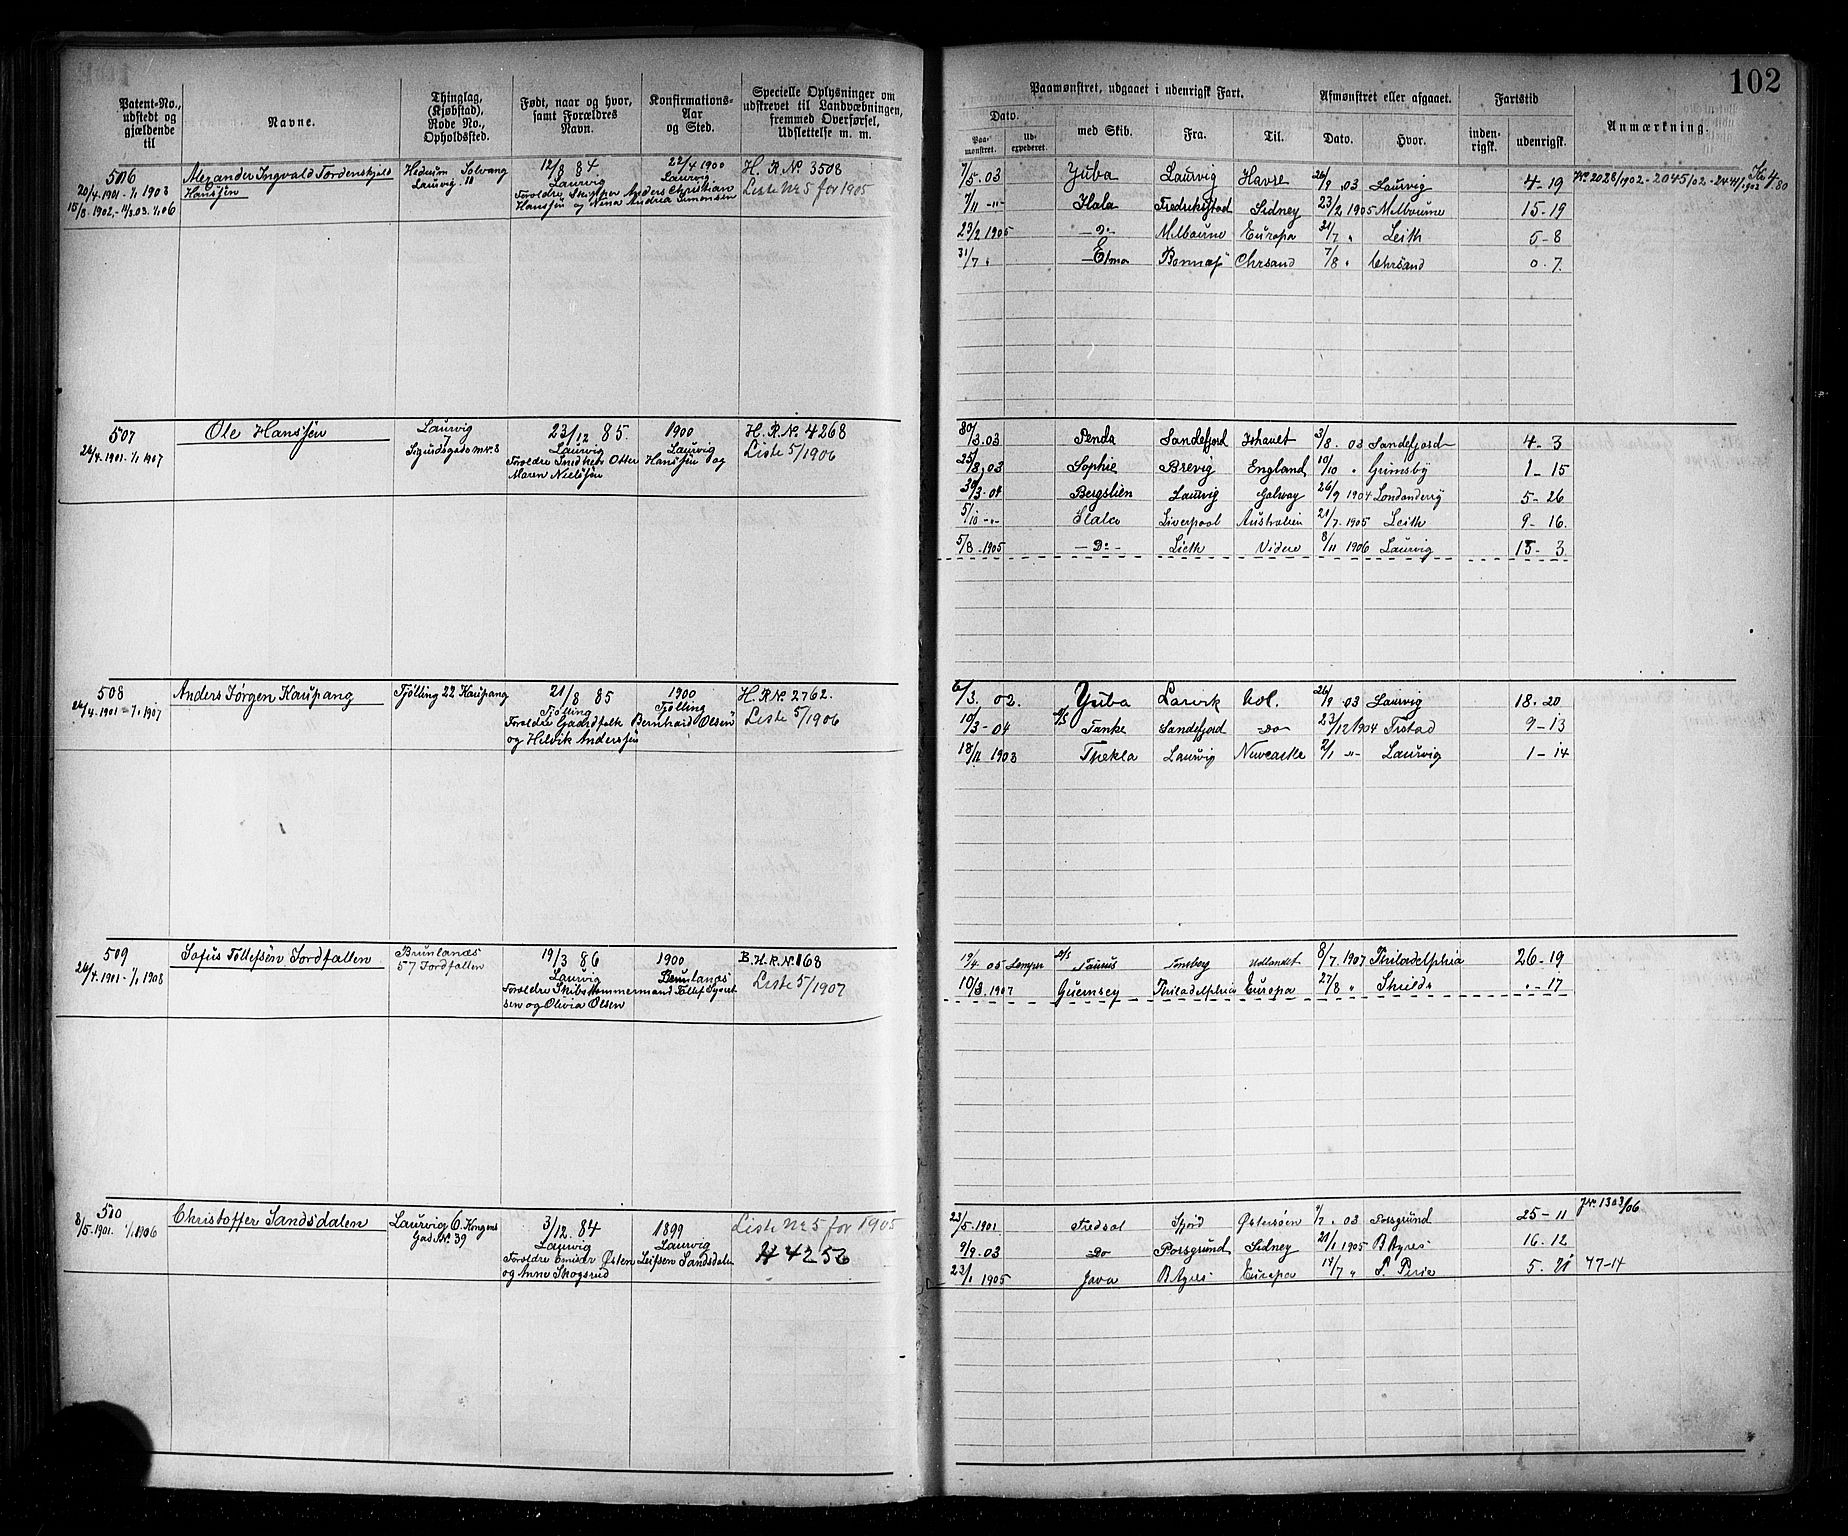 102
Patent-No., udstedt og gjældende til
Navne.
Thinglag, (Kjøbstad), Rode No., Opholdssted.
Født, naar og hvor, samt Forældres Navn.
Konfirmations-Aar og Sted.
Specielle Oplysninger om udskrevet til Landværnet, fremmed Overførsel, Udslettelse m. m.
Paamønstret, udgaaet i udenrigsk Fart.
Dato.
Paamønstret.
udexpederet.
med Skib.
Fra.
Til.
Afmønstret eller afgaaet.
Dato.
Hvor.
Fartstid
indenrigsk.
udenrigsk.
Anmærkning.
506
20/4.1901 - 1/1 1903
15/8.1902. - 1/1 06
Alexander Ingvald Tordenskjold
Hansen
Hedrum Solvang
Laurvig. 10
12/8 84
Laurvig
Forældre Skipper Anders Christian
Hansen og Nina Andrea Simonsen
22/4 1900
Laurvig
H. R. No 3508
Liste Nr 5 for 1905
7/5. 03 Yuba Laurvig Havre 26/9 03 Laurvig 4-19
7/11 -"- Hala Fredrikstad Sidney 23/2 1905 Melbourne 15-19
23/2 1905 -Do- Melbourne Europa 31/7 " Leith 5-8
31/7 " Elma Chrsand 7/8 " Chrsand 0. 7.
507
24/4.1901 - 1/1 1907
Ole Hansen
Laurvig
7
Sigurdsgade No. 8
23/12 85.
Laurvig
Forældre Snedker Otter Hansen og
Maren Nielsen
1900
Laurvig
H. R. No. 4268
Liste 5/1906
30/3. 03 Penda Sandefjord Ishavet 3/8. 03 Sandefjord 4- 3
25/8, 03 Sophie Brevig England 10/10 " Grimsby 1-15
30/3-04 Bergslien Laurvig Galway 26/9 1904 Londonderry 5-26
5/10 -"- Hala Liverpool Australien 21/7. 1905 Leith 9-16.
5/8-1905 -Do- Lieth Videre 8/11 1906 Laurvig 15-3
508
24/4.1901 - 1/1 1907
Anders Jørgen Kaupang
Tjølling 22 Kaupang
21/8 85
Tjølling
Forældre Gaardfolk Bernhard Olsen
og Helvik Andersen
1900
Tjølling
H.R.No. 2762.
Liste 5/1906
6/3. 02. Yuba Larvik Hol. 26/9 03 Laurvig 18. 20
10/3-04 D/S Tanke Sandefjord Do 23/12 1904 9-13
18/11 1903 Thekla Laurvig Newcastle 2/1 -"- Laurvig 1-14
509
24/4.1901 - 1/1 1908
Sofus Tollefsen Jordfallen
Brunlanæs
57 Jordfallen
19/3 86
Laurvig
Forældre Skibstømmermand Tollef
sen og Olivia Olsen
1900
Brunlanæs
B.H.R.No. 168
Liste 5/1907
19/4. 05 D/S Taurus Tønsberg Udlandet 8/7 1907 Philadelphia 26-19
10/8.1907 Guernsey Philadelphia Europa 27/8 " Shields "-17
510
8/5.1901. 1/1 1906
Christoffer Sandsdalen
Laurvig 6. Kongens
Gad No. 39
3/12. 84
Laurvig
Forældre Østen Leifsen Sandsdalen
og Anne Skogsrud
1899
Laurvig
Liste Nr 5 for 1905
H 4256
23/5.1901 Fredsal Østersøen 03 Porsgrund 25-11
9/9.03 Do Porsgrund Sidney 21/1 1905 B Ayres 16.12
23/1 1905 Java B Ayres Europa 14/7 " 5. 21 47-14
J.No. 1303/06